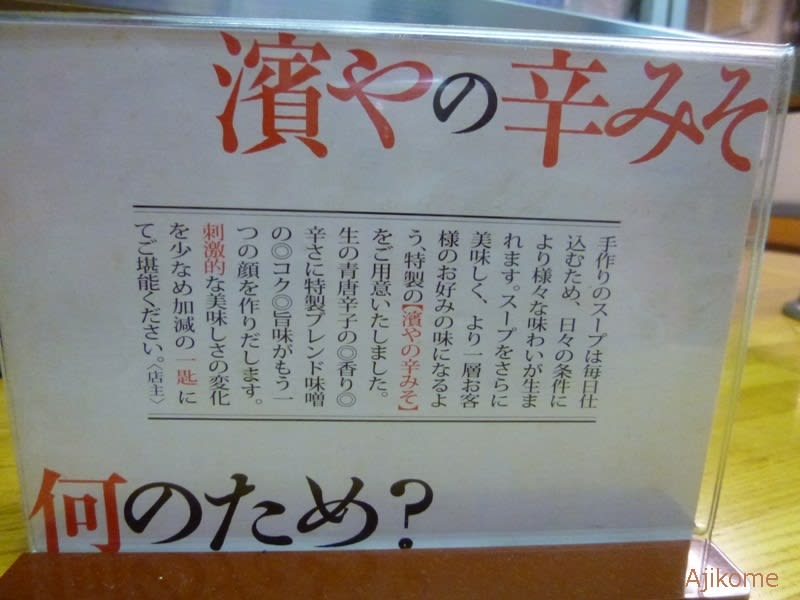 濱やの辛みそ
手作りのスープは毎日仕
込むため、日々の条件に
より様々な味わいが生ま
れます。スープをさらに
美味しく、より一層お客
様のお好みの味になるよ
う、特製の【濱やの辛みそ】
をご用意いたしました。
生の青唐辛子の◎香り◎
辛さに特製ブレンド味噌
の◎コク◎旨味がもう一
つの顔を作りだします。
刺激的な美味しさの変化
を少なめ加減の一匙に
てご堪能ください。〈店主〉
何のため?
Ajikome